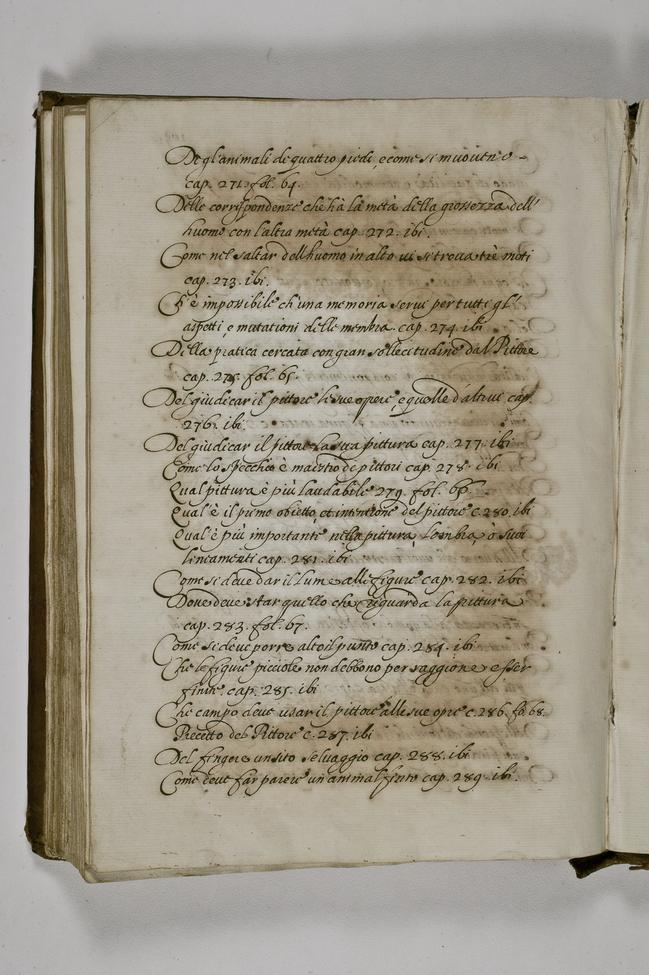 De gl'animali di quattro piedi, e come si muoveno
cap. 271. fol. 64.
Delle corrispondenze che hà la metà della grossezza dell'
huomo con l'altra metà cap. 272. ibi.
Come nel saltar dell'huomo in alto vi si trova trè moti
cap. 273. ibi.
Ch'è impossibile ch'una memoria serve per tutti gl'
aspetti, e mutationi delle membra. cap. 274. ibi
Della pratica cercata con gran sollecitudine dal Pittore
cap. 275. fol. 65.
Del giudicar il pittore le sue opere, e quelle d'altrui cap.
276. ibi.
Del giudicar il pittore la sua pittura cap. 277. ibi
Come lo specchio è maestro di pittori cap. 278. ibi
Qual pittura è più laudabile 279. fol.
Qual'è il primo obietto, et intenzione del pittore c. 280. ibi
Qual'è più importante nella pittura, l'ombra, ò suoi
lineamenti cap. 281. ibi
Come si deve dar il lume alle figure cap. 282. ibi
Dove deve star quello che riguarda la pittura
cap. 283. fol. 67.
Come si deve porre alto il punto cap. 284. ibi
Che le figure picciole non debbono per raggione esser
finite. cap. 285. ibi
Che campo deve usar il pittore alle sue opre c. 286. fol. 68.
Precetto del Pittore c. 287. ibi
Del fingere un sito selvaggio cap. 288. ibi
Come deve far parere un animal finto cap. 289. ibi.